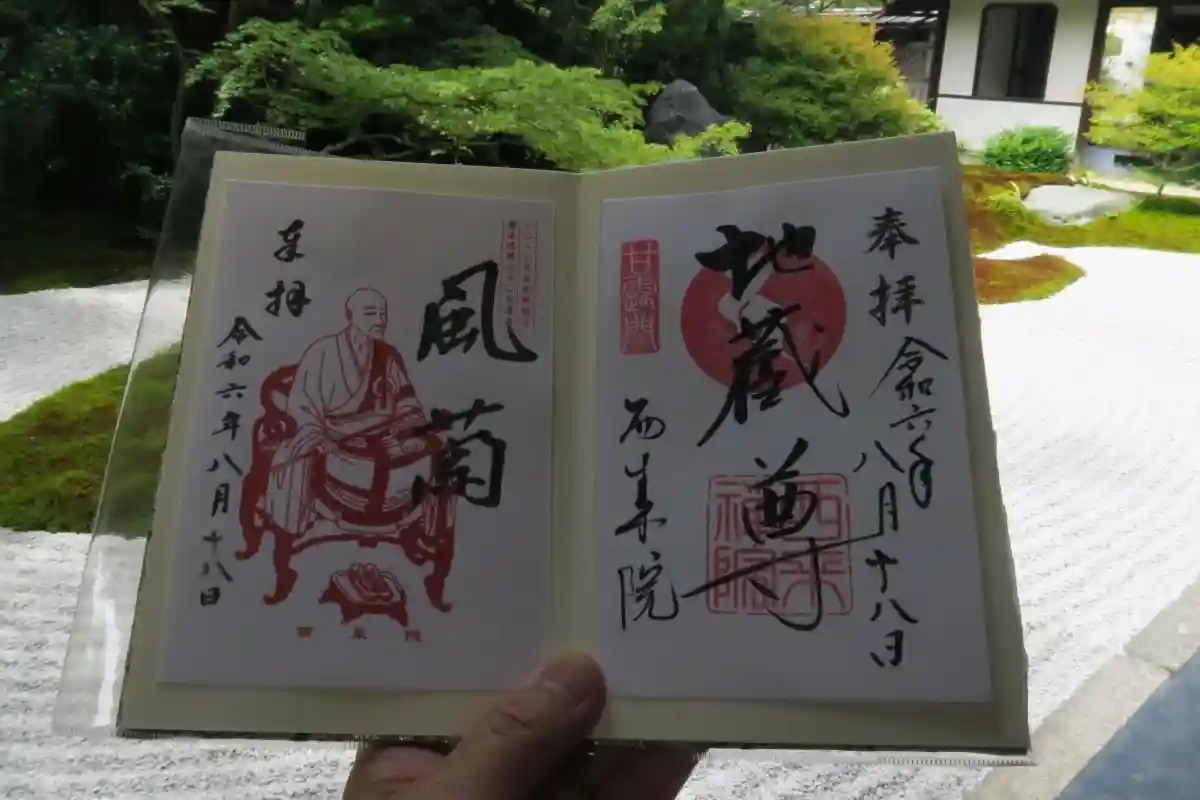 奉拝
令和六年八月十八日
地蔵尊
西来院
甘露門
西来院
風
奉拝
令和六年八月十八日
西来院